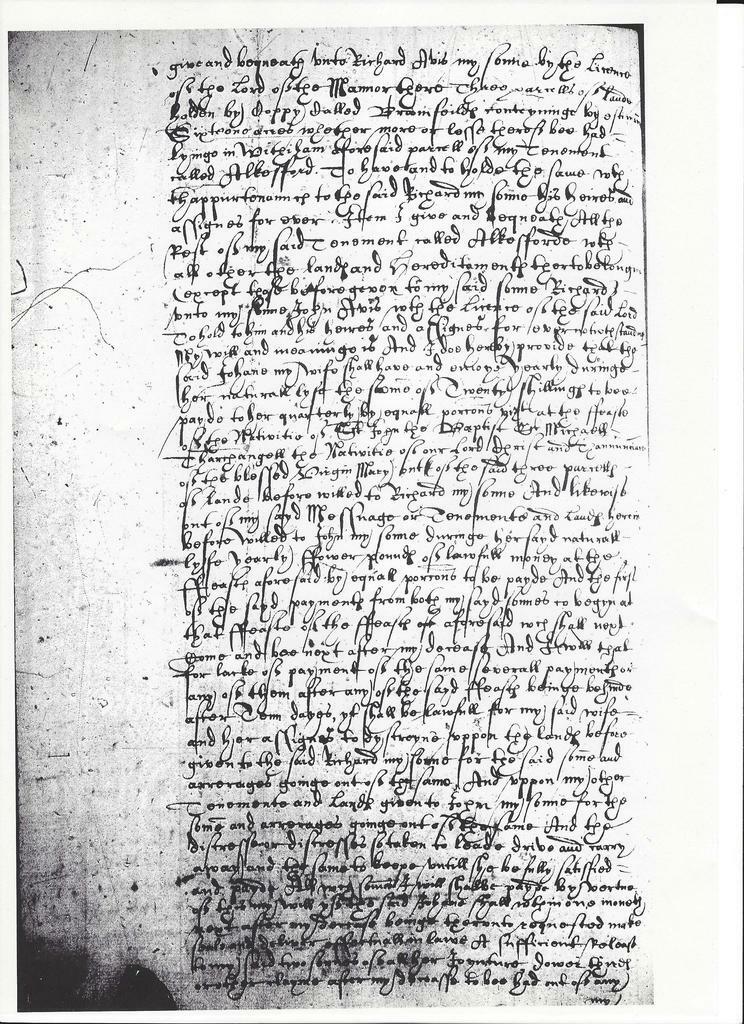 give and bequeath unto Richard Avis my sonne by the Licence
of the Lord of the Mannor there Three parcells of Lande
holden by Coppy Called Bromfeilds conteyninge by estimacion
Sixteene acres whether more or lesse thereof bee had
lyinge in Withiham aforesaid parcell of my Tenement
called Alkesfford. To have and to holde the same wth
thappurtenannces to the said Richard my sonne his heires and
assignes for ever. Item I give and bequeath All the
Rest of my said Tenement called Alkesforde wth
all other the lands and Hereditaments therto belonginge
except those before geven to my said sonne Richard
unto my sonne John Avis wth the Licence of the said Lord
To hold to him and his heires and assignes for ever notwthstandinge
My will and meaninge is And I doe hereby provide that the
said Johane my wife shall have and enioye yearly duringe
her naturall lyfe the some of Twentie shillings to bee
payde to her quarterly by equall porcons at the ffeaste
of the Nativitie of St John the Baptist St Michaell
Tharchangell the Nativitie of our Lord Christ and Thannunciacion
of the blessed Virgin Mary out of the said three parcells
of Lande before willed to Richard my sonne And likewise
out of my sayd Messuage or Tenemente and Lands herein
before willed to John my sonne duringe her sayd naturall
lyfe yearly ffower pounds of lawfull money at the
ffeasts aforesaid by equall porcons to be payde And the first
of the sayd payments from both my sayd sonnes to begyn at
that ffeaste of the ffeasts aforesaid wch shall next
Come and bee next after my decease And I will that
for lacke of payment of the same severall payments or
any of them after any of the sayd ffeasts beinge behinde
after Tenn dayes, yt shall be lawfull for my said wife
and her assignes to dystreyne uppon the lands before
given to the said Richard my sonne for the said some and
arrerages goinge out of the same And uppon my other
Tenemente and Lands given to John my sonne for the
some and arrerages goinge out of the same And the
distresse or distresses so taken to leade drive and carry
away and the same to keepe untill she be fully satisfied
and payde All wch somes I will shalbe payde by vertue
of this my will yf the said Johane shall within one moneth
next after my decease beinge thereunto requested make
seale and deliver effectuall in lawe A sufficient Release
to my said two sonnes of all her Joyncture dower thirds
or other clayme after my decease to bee had out of any
my